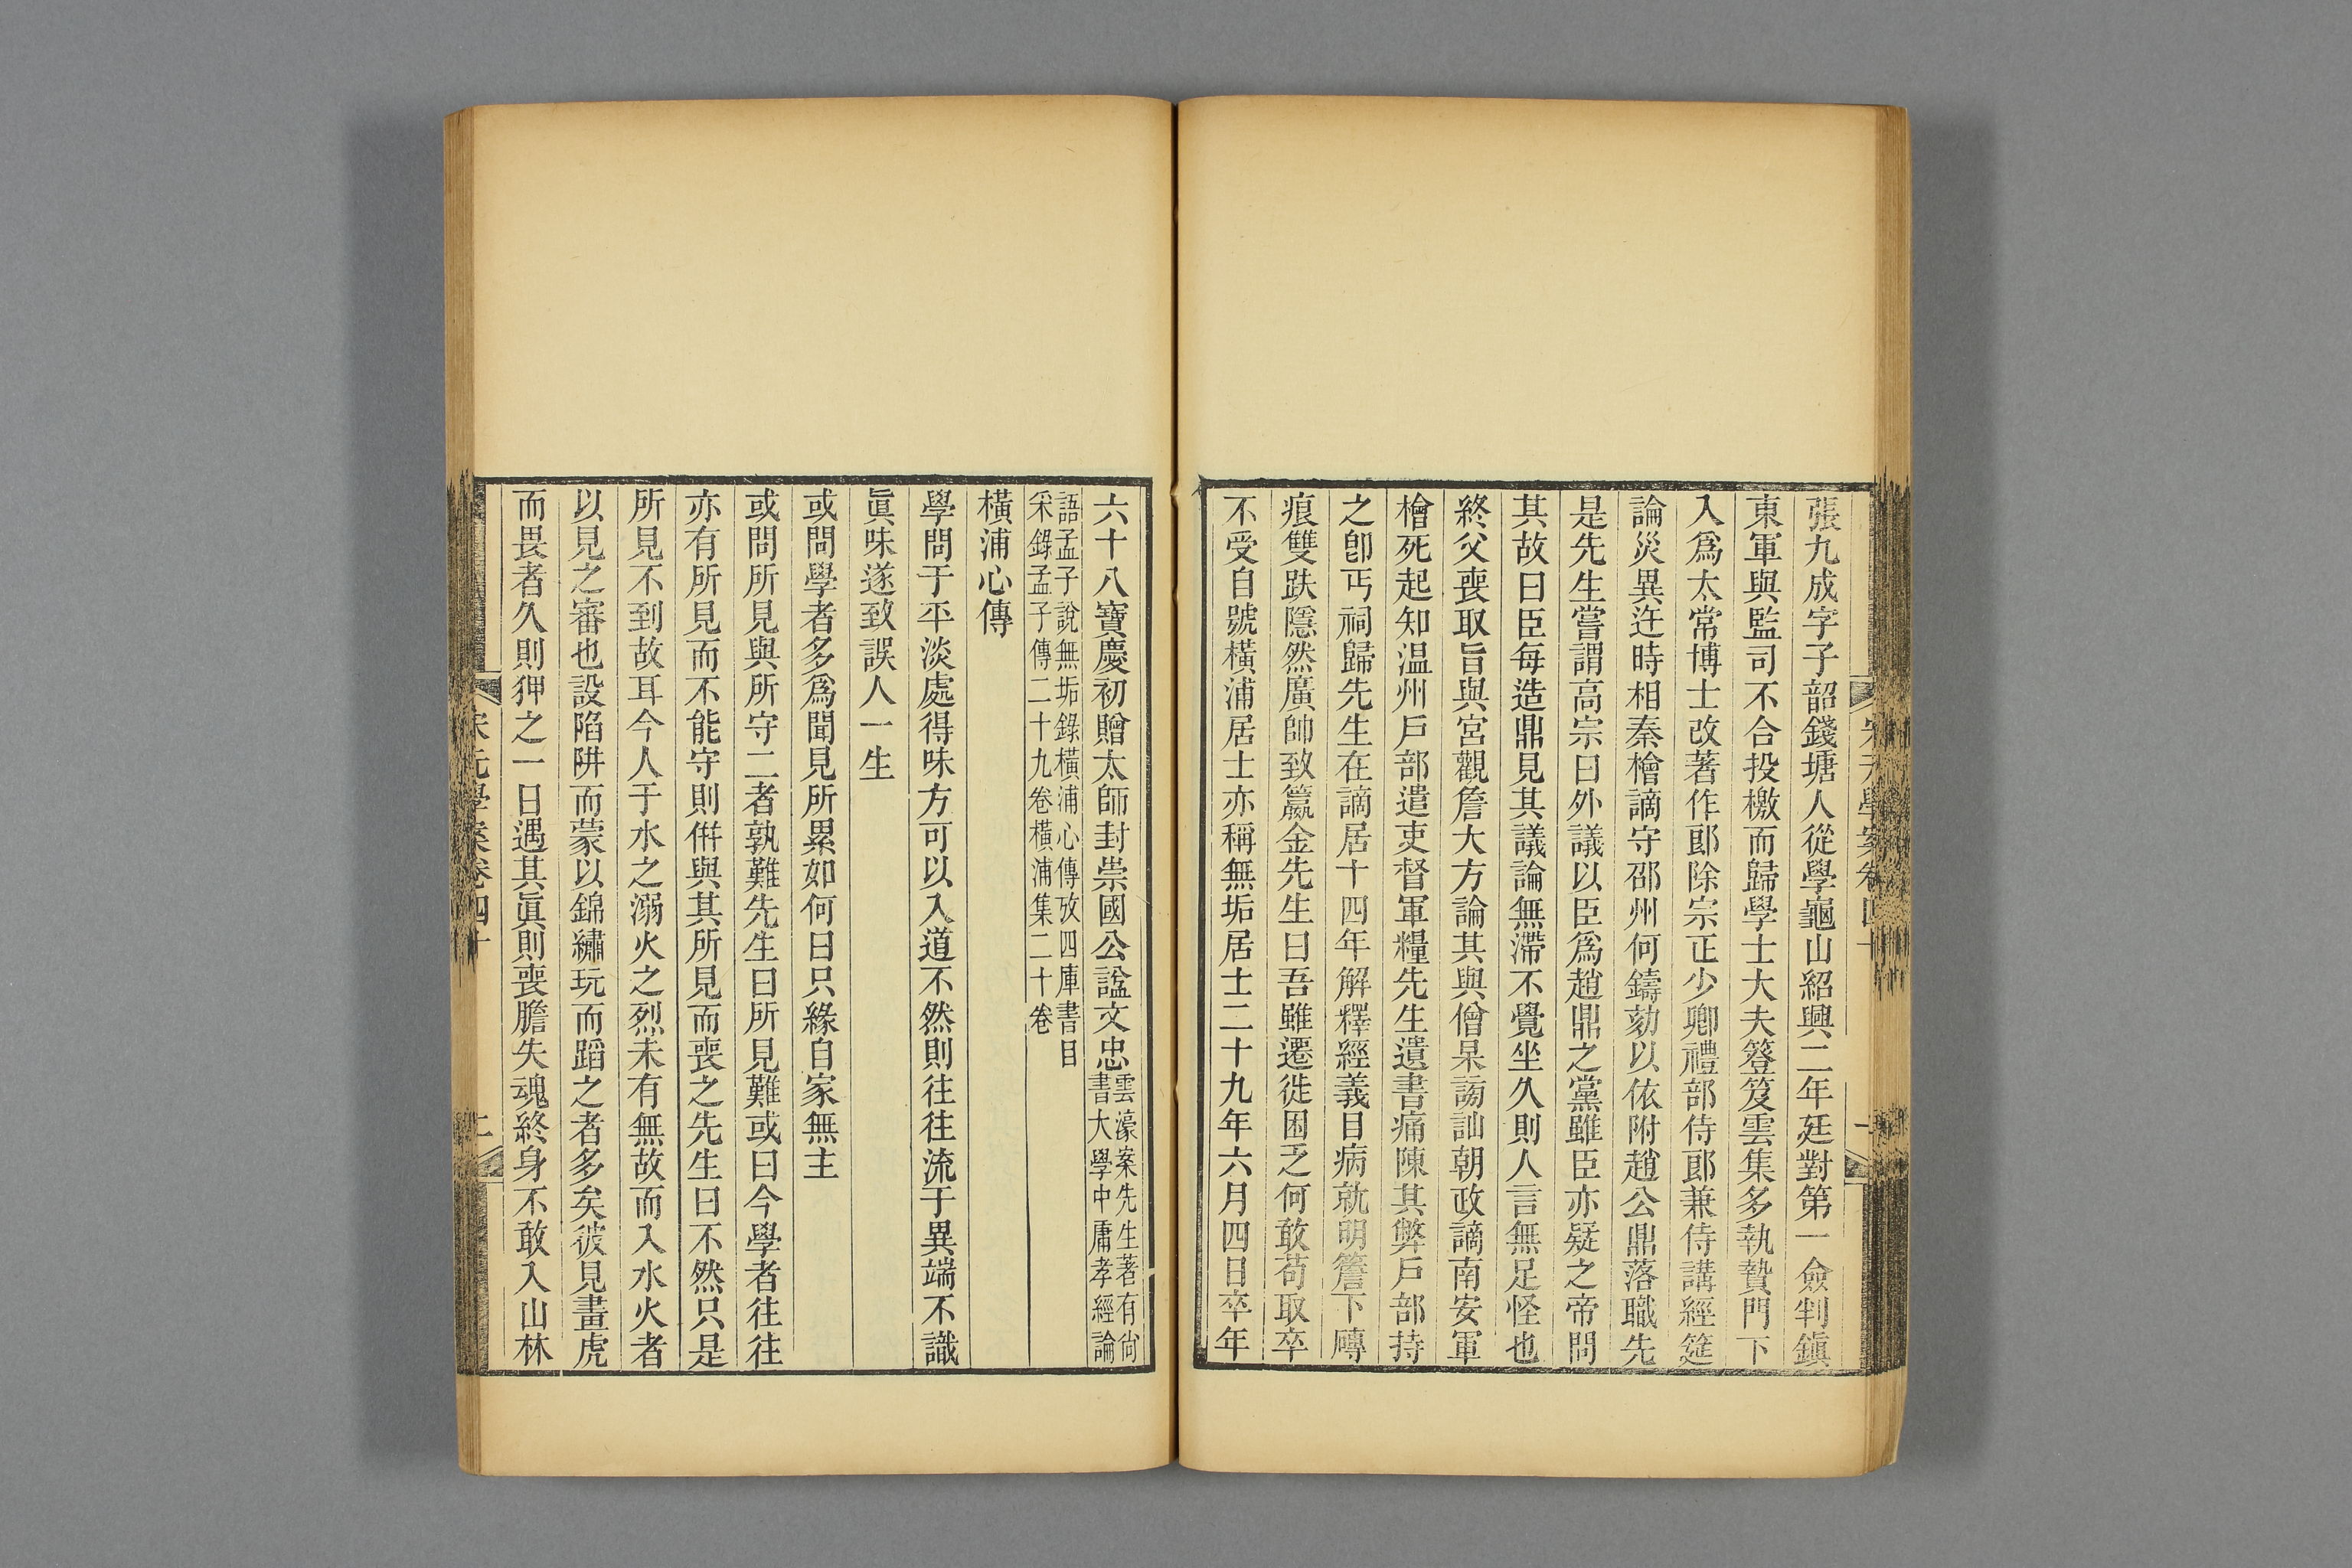 張九成字子韶錢塘人從學龜山紹興二年廷對第一僉判鎭
東軍與監司不合投檄而歸學士大夫簦笈雲集多執贄門下
入爲太常博士改著作郎除宗正少卿禮部侍郎兼侍講經筵
論災異迕時相秦檜謫守邵州何鑄劾以依附趙公鼎落職先
是先生嘗謂高宗曰外議以臣爲趙鼎之黨雖臣亦疑之帝問
其故曰臣每造鼎見其議論無滯不覺坐久則人言無足怪也
終父喪取旨與宮觀詹大方論其與僧杲謗訕朝政謫南安軍
檜死起知温州戸部遣吏督軍糧先生遺書痛陳其弊戸部持
之卽丐祠歸先生在謫居十四年解釋經義目病就明簷下磚
痕雙趺隱然廣帥致籝金先生曰吾雖遷徙困乏何敢苟取卒
不受自號橫浦居士亦稱無垢居士二十九年六月四日卒年
六十八寶慶初贈太師封崇國公諡文忠雲濠案先生著有尙
書大學中庸孝經論
語孟子說無垢錄橫浦心傳攷四庫書目
采錄孟子傳二十九卷橫浦集二十卷
橫浦心傳
學問于平淡處得味方可以入道不然則往往流于異端不識
眞味遂致誤人一生
或問學者多爲聞見所累如何曰只緣自家無主
或問所見與所守二者孰難先生曰所見難或曰今學者往往
亦有所見而不能守則倂與其所見而喪之先生曰不然只是
所見不到故耳今人于水之溺火之烈未有無故而入水火者
以見之審也設陷阱而蒙以錦繡玩而蹈之者多矣彼見畫虎
而畏者久則狎之一日遇其眞則喪膽失魂終身不敢入山林
宋元學案卷四十
二